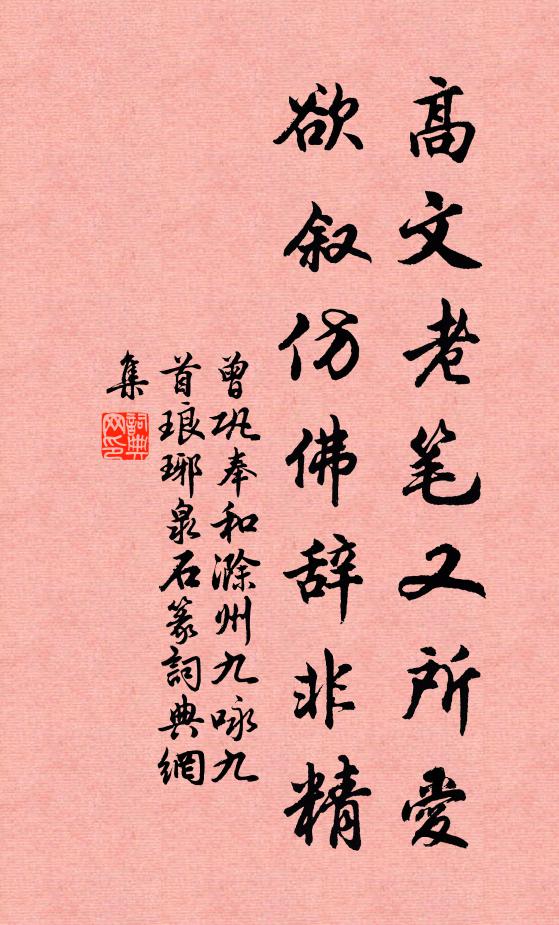 高文老笔又所爱
欲叙仿佛辞非精
曾巩奉和滁州九咏九
首琅琊泉石篆詞典網
集
詞典
网印